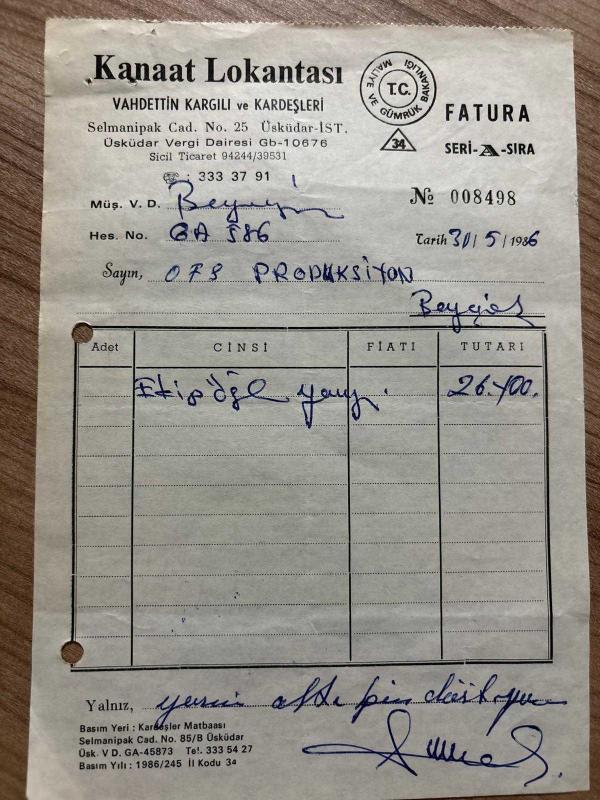 Kanaat Lokantası
VAHDETTİN KARGILI ve KARDEŞLERİ
Selmanipak Cad. No. 25 Üsküdar-İST.
Üsküdar Vergi Dairesi Gb-10676
Sicil Ticaret 94244/39531
☎ : 333 37 91
MALİYE VE GÜMRÜK BAKANLIĞI
T.C.
34
FATURA
SERİ-A-SIRA
Müş. V. D.
№ 008498
Hes. No. GA 586
Tarih 31/5/1986
Sayın, OFS PRODUKSİYON
Adet CİNSİ FİATI TUTARI
Ekip öğle 26.400.
Yalnız, yirmi altı bin dört yüz
Basım Yeri : Kardeşler Matbaası
Selmanipak Cad. No. 85/B Üsküdar
Üsk. V D. GA-45873 Tel. 333 54 27
Basım Yılı : 1986/245 İl Kodu 34